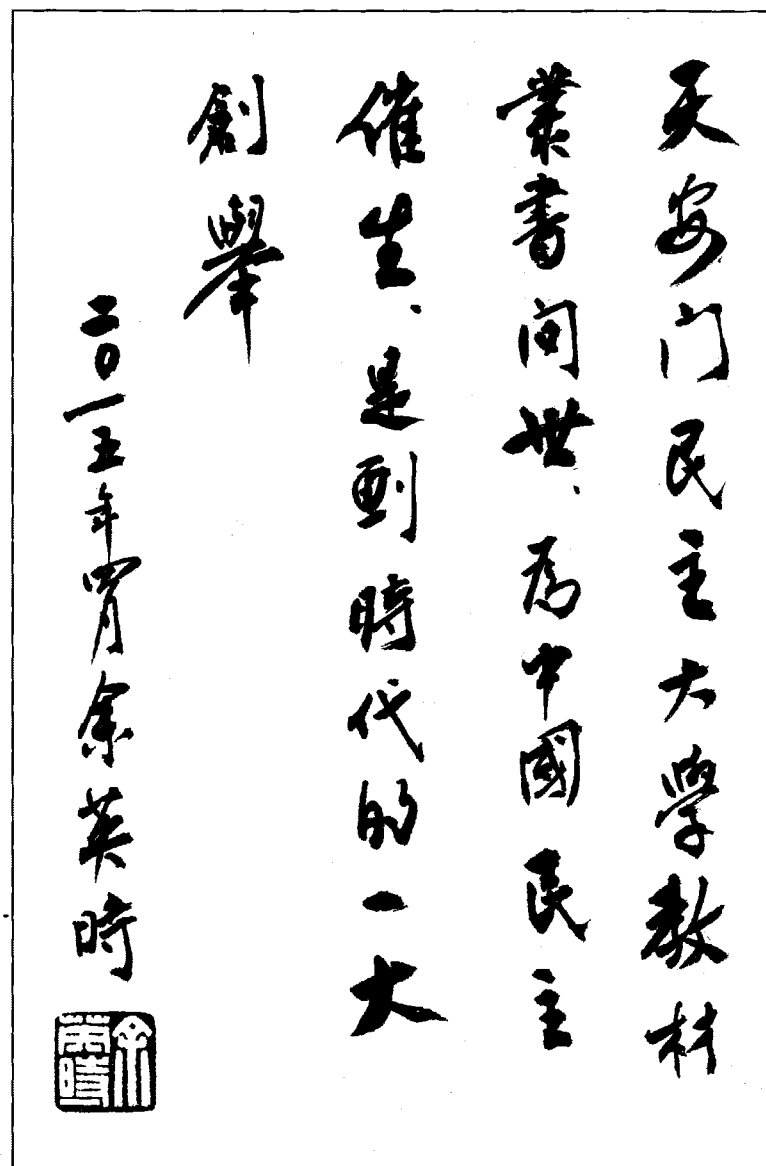 天安门民主大學教材
叢書问世、為中國民主
催生、是劃時代的一大
創舉
二〇一五年四月余英時
余英時